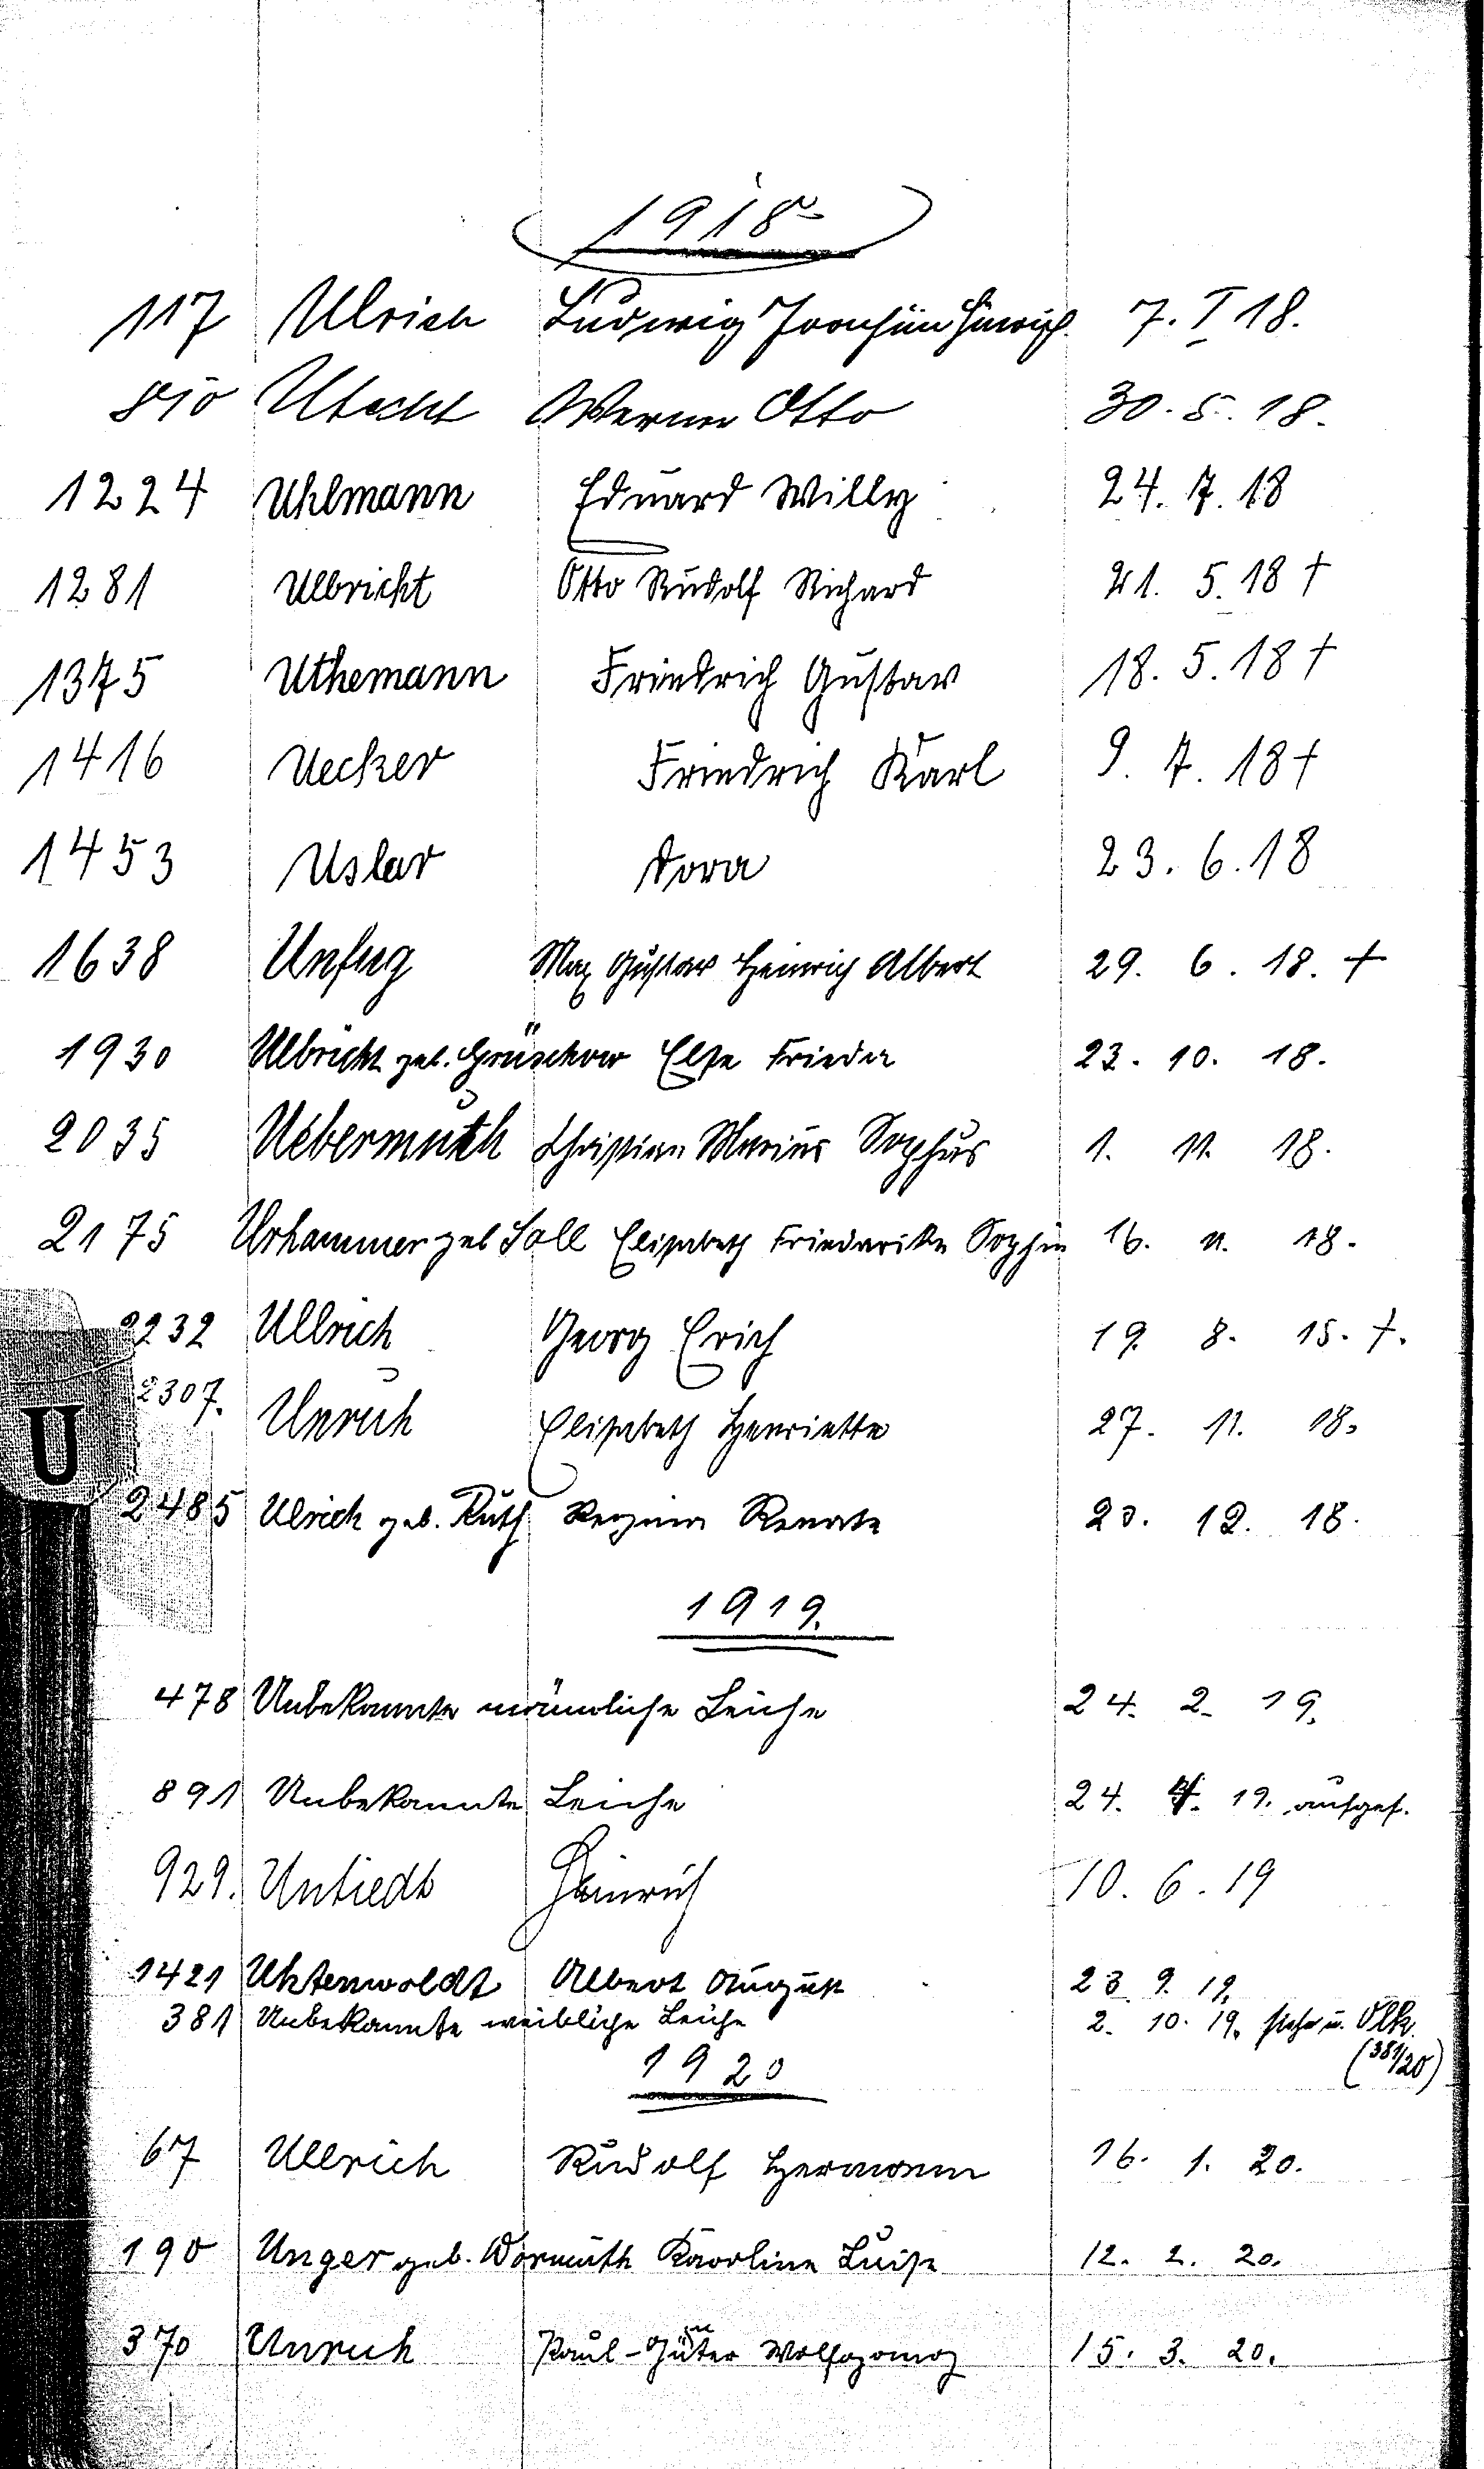 1918
117 Ulrich Ludwig Joachim Hinrich 7. I 18.
810 Utecht Werner Otto 30. 5. 18.
1224 Uhlmann Eduard Willy 24. 7. 18
1281 Ulbricht Otto Rudolf Richard 21. 5. 18 †
1375 Uthemann Friedrich Gustav 18. 5. 18 †
1416 Uecker Friedrich Karl 9. 7. 18 †
1453 Uslar Dora 23. 6. 18
1638 Unfug Max Gustav Heinrich Albert 29. 6. 18. †
1930 Ulbricht geb. Grüschow Else Frieda 23. 10. 18.
2035 Uebermuth Christian Marius Sophus 1. 11. 18.
2175 Urhammer geb Soll Elisabeth Friedarike Sophie 16. 11. 18.
2232 Ullrich Georg Erich 19. 8. 15. †.
2307. Unruh Elisabeth Henriette 27. 11. 18.
U
2485 Ulrich geb. Ruth Regina Renate 23. 12. 18.
1919.
478 Unbekannte männliche Leiche 24. 2. 19.
891 Unbekannte Leiche 24. 4. 19. aufgef.
929. Untiedt Heinrich 10. 6. 19
1421 Uhtenwoldt Albert August 23. 9. 19.
381 Unbekannte weibliche Leiche 2. 10. 19. siehe u.
(381/20)
1920
67 Ullrich Rudolf Hermann 16. 1. 20.
190 Unger geb. Wormuth Karoline Luise 12. 2. 20.
370 Unruh Paul-Günter Wolfgang 15. 3. 20.